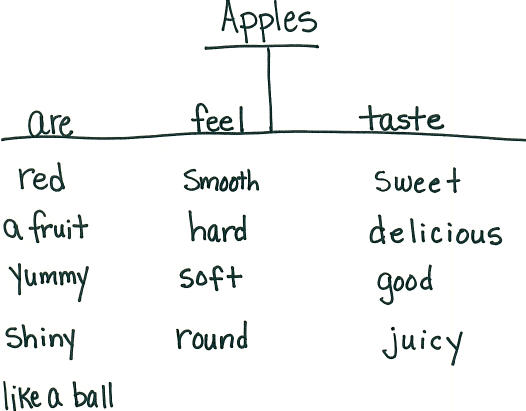 Apples
are feel taste
red Smooth sweet
a fruit hard delicious
Yummy soft good
Shiny round juicy
like a ball